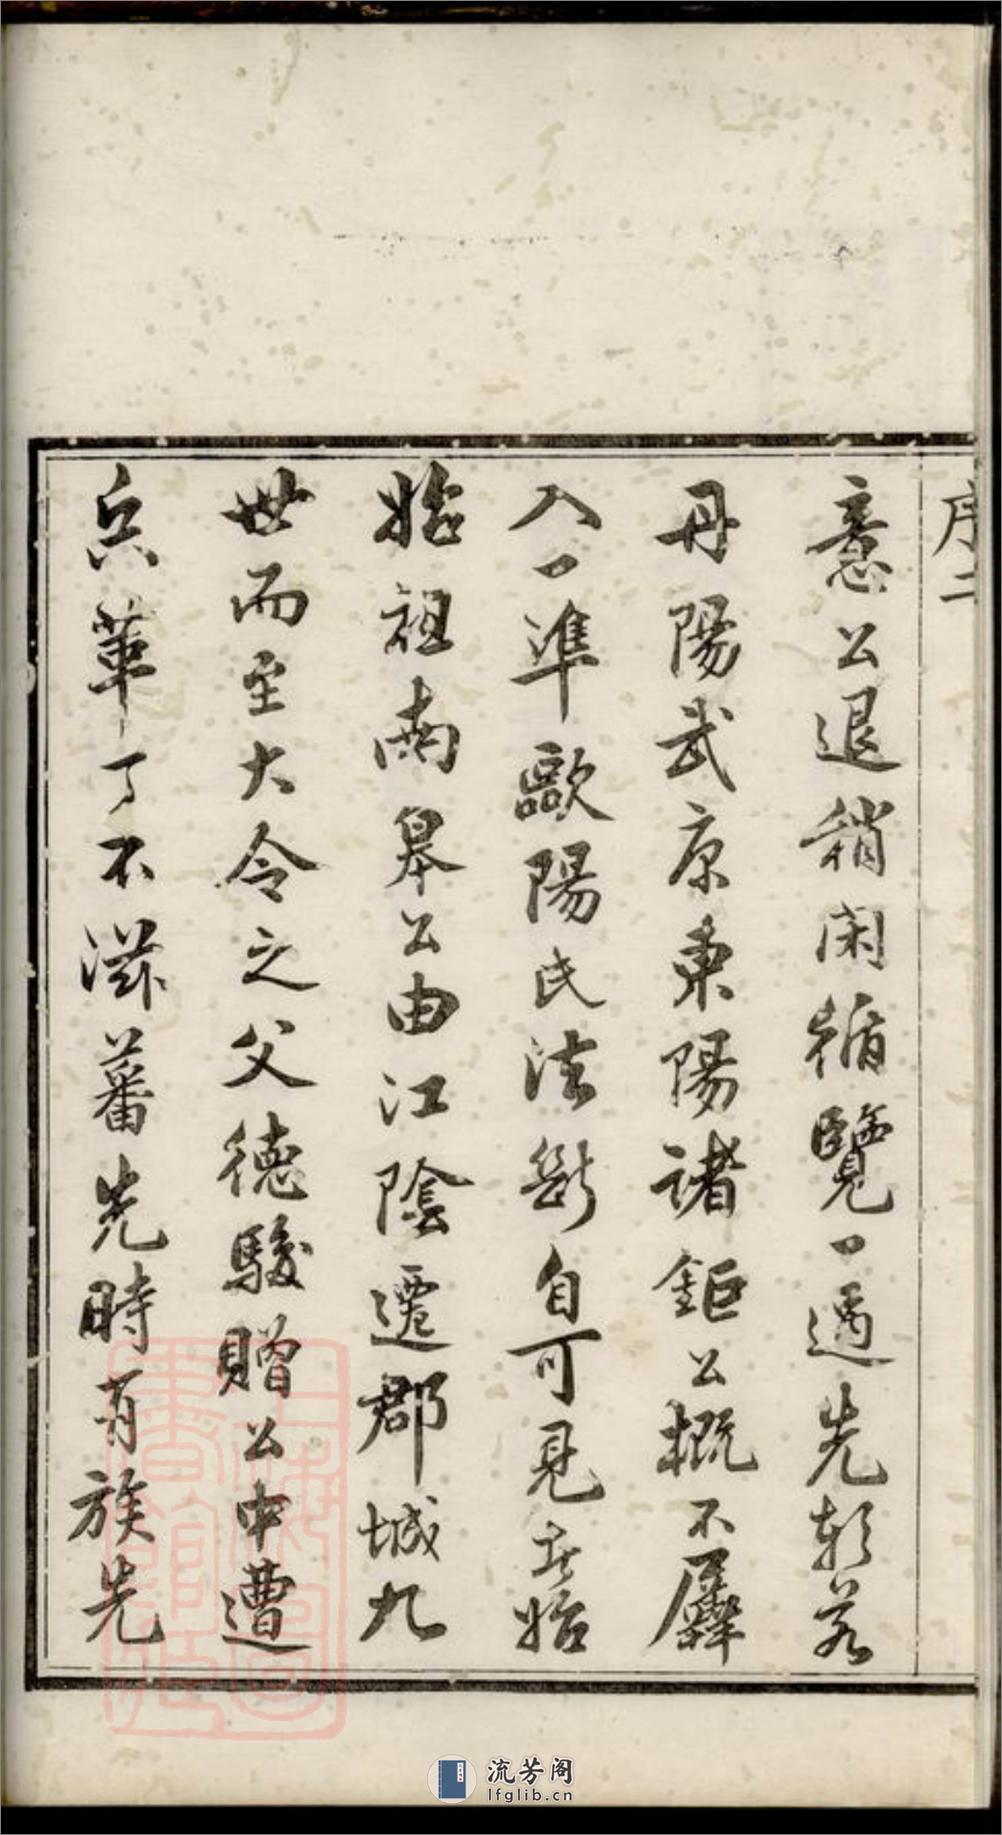 序二
意公退稍閑循覽一過先朝若
丹陽武康東陽諸鉅公概不羼
入一準歐陽氏法斷自可見者始
始祖南皋公由江陰遷郡城九
世而至大令之父德駿贈公中遭
兵革了不滋蕃先時有族先
上海圖書館藏
流芳阁
lfglib.cn